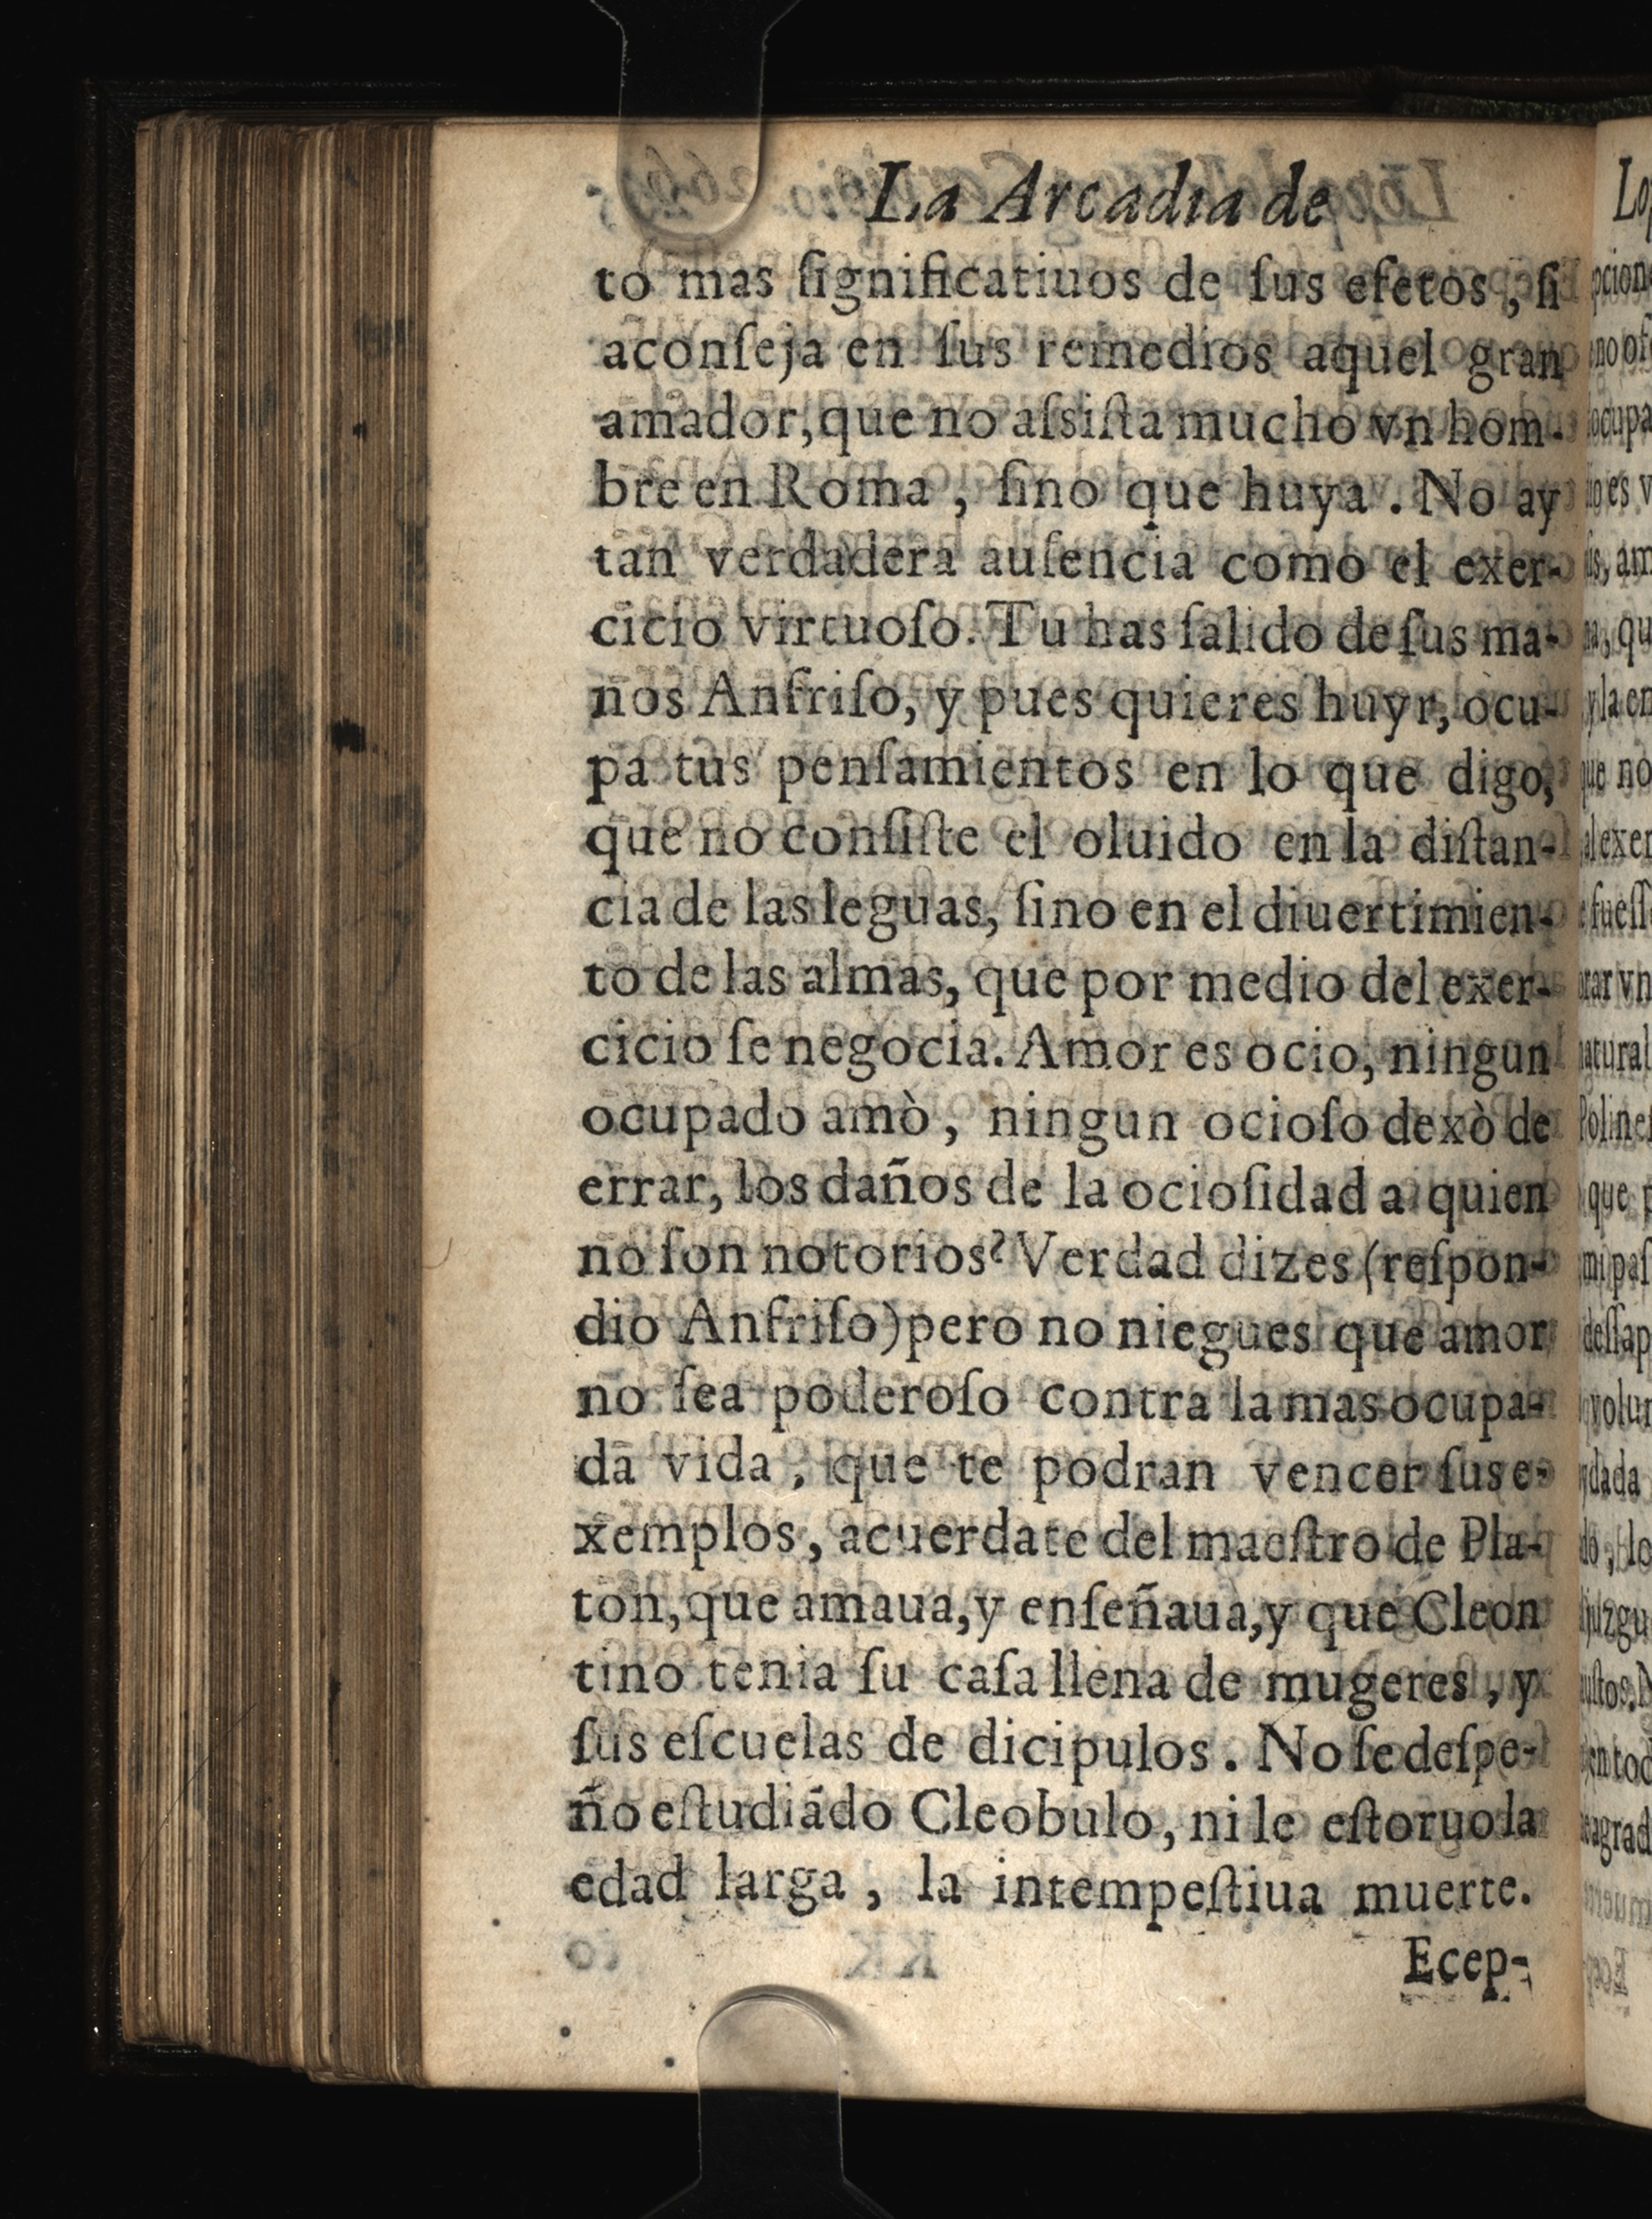 La Arcadia de
to mas ſignificatiuos de ſus efetos, ſi
aconſeja en ſus remedios aquel gran
amador, que no aſsiſta mucho vn hom-
bre en Roma, ſino que huya. No ay
tan verdadera auſencia como el exer-
cicio virtuoſo. Tu has ſalido de ſus ma-
nos Anfriſo, y pues quieres huyr, ocu-
pa tus penſamientos en lo que digo,
que no conſiſte el oluido en la diſtan-
cia de las leguas, ſino en el diuertimien-
to de las almas, que por medio del exer-
cicio ſe negocia. Amor es ocio, ningun
ocupado amò, ningun ocioſo dexò de
errar, los daños de la ocioſidad a quien
no ſon notorios? Verdad dizes (reſpon-
dio Anfriſo) pero no niegues que amor
no ſea poderoſo contra la mas ocupa-
da vida, que te podran vencer ſus e-
xemplos, acuerdate del maeſtro de Pla-
ton, que amaua, y enſeñaua, y que Cleon
tino tenia ſu caſa llena de mugeres, y
ſus eſcuelas de dicipulos. No ſe deſpe-
ño eſtudiãdo Cleobulo, ni le eſtoruo la
edad larga, la intempeſtiua muerte.
Ecep-